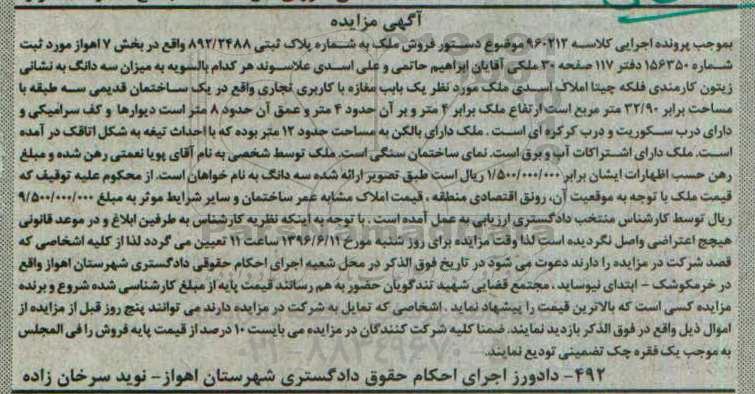 آگهی مزایده
بموجب پرونده اجرایی کلاسه ۹۶۰۲۱۲ موضوع دستور فروش ملک به شماره پلاک ثبتی ۸۹۲/۲۴۸۸ واقع در بخش ۷ اهواز مورد ثبت
شماره ۱۵۶۳۵۰ دفتر ۱۱۷ صفحه ۳۰ ملکی آقایان ابراهیم حاتمی و علی اسدی علاسوند هر کدام بالسویه به میزان سه دانگ به نشانی
زیتون کارمندی فلکه چیتا املاک اسدی ملک مورد نظر یک باب مغازه با کاربری تجاری واقع در یک ساختمان قدیمی سه طبقه با
مساحت برابر ۳۲/۹۰ متر مربع است ارتفاع ملک برابر ۴ متر و بر آن حدود ۴ متر و عمق آن حدود ۸ متر است دیوارها و کف سرامیکی و
دارای درب سکوریت و درب کرکره ای است . ملک دارای بالکن به مساحت حدود ۱۲ متر بوده که با احداث تیغه به شکل اتاقک در آمده
است. ملک دارای اشتراکات آب و برق است. نمای ساختمان سنگی است. ملک توسط شخصی به نام آقای پویا نعمتی رهن شده و مبلغ
رهن حسب اظهارات ایشان برابر ۱/۵۰۰/۰۰۰/۰۰۰ ریال است طبق تصویر ارائه شده سه دانگ به نام خواهان است. از محکوم علیه توقیف که
قیمت ملک با توجه به موقعیت آن، رونق اقتصادی منطقه ، قیمت املاک مشابه عمر ساختمان و سایر شرایط موثر به مبلغ ۹/۵۰۰/۰۰۰/۰۰۰
ریال توسط کارشناس منتخب دادگستری ارزیابی به عمل آمده است . با توجه به اینکه نظریه کارشناس به طرفین ابلاغ و در موعد قانونی
هیچج اعتراضی واصل نگردیده است لذا وقت مزایده برای روز شنبه مورخ ۱۳۹۶/۶/۱۱ ساعت ۱۱ تعیین می گردد لذا از کلیه اشخاصی که
قصد شرکت در مزایده را دارند دعوت می شود در تاریخ فوق الذکر در محل شعبه اجرای احکام حقوقی دادگستری شهرستان اهواز واقع
در خرمکوشک - ابتدای نیوساید ، مجتمع قضایی شهید تندگویان حضور به هم رسانند قیمت پایه از مبلغ کارشناسی شده شروع و برنده
مزایده کسی است که بالاترین قیمت را پیشنهاد نماید . اشخاصی که تمایل به شرکت در مزایده دارند می توانند پنج روز قبل از مزایده از
اموال ذیل واقع در فوق الذکر بازدید نمایند. ضمنا کلیه شرکت کنندگان در مزایده می بایست ۱۰ درصد از قیمت پایه فروش را فی المجلس
به موجب یک فقره چک تضمینی تودیع نمایند.
۴۹۲- دادورز اجرای احکام حقوق دادگستری شهرستان اهواز - نوید سرخان زاده
ParsNamadData
۰۲۱-۸۸۳۴۹۶۷۰-۵